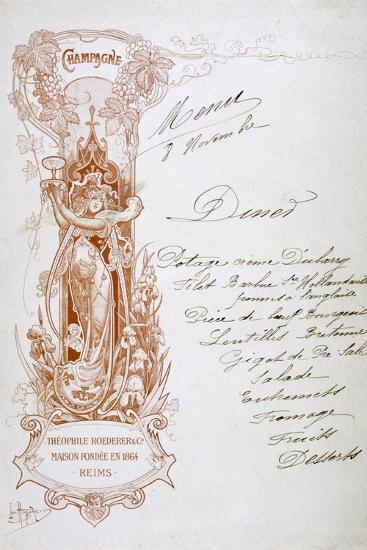 CHAMPAGNE
Menu
8 Novembre
Diner
Potage crème Dubarry
Filet Barbue Sce Hollandaise
pommes à l'anglaise
Pièce de boeuf Bourgeoise
Lentilles Bretonne
Gigot de Pré Salé
Salade
Entremets
Fromage
Fruits
Desserts
THÉOPHILE ROEDERER & Co
MAISON FONDÉE EN 1864
- REIMS -